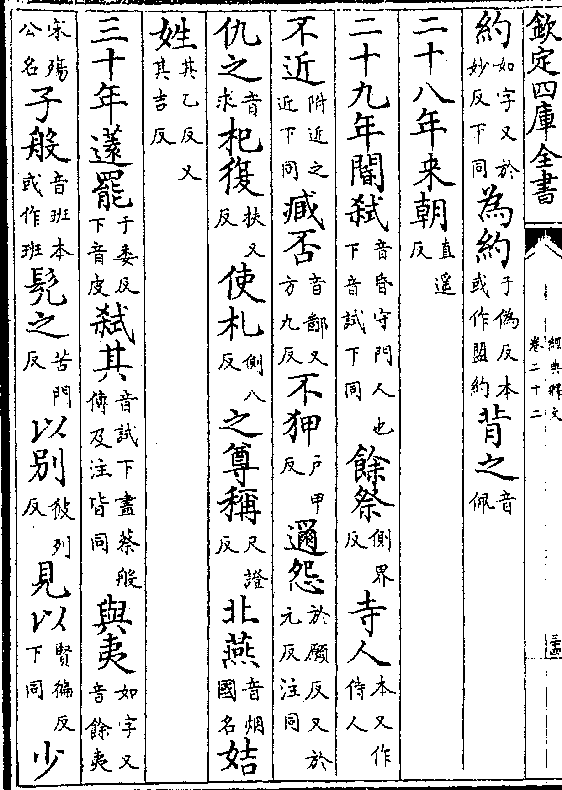 欽定四庫全書
經典釋文
卷二十二
約如字又於妙反下同為約于偽反本或作盟約背之音佩
二十八年来朝直遥反
二十九年閽弑音昏守門人也下音試下同餘祭側界反寺人本又作侍人
不近附近之近下同臧否音鄙又方九反不狎戸甲反邇怨於願反又於元反注同
仇之音求杞復扶又反使札側八反之尊稱尺證反北燕音烟國名姞
姓其乙反又其吉反
三十年薳罷于委反下音皮弑其音試下盡蔡般傳及注皆同與夷如字又音餘夷
宋殤公名子般音班本或作班髡之苦門反以别彼列反見以賢徧反下同少